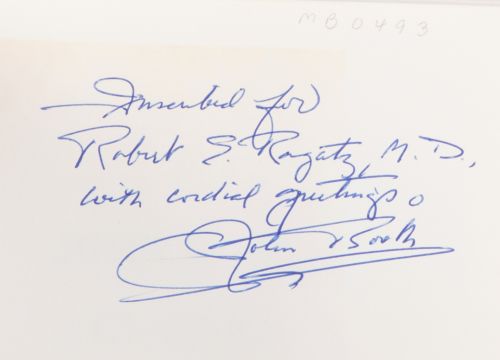 MB0493
Inscribed for
Robert E. Ragatz, M.D.,
with cordial greetings.
John Booth